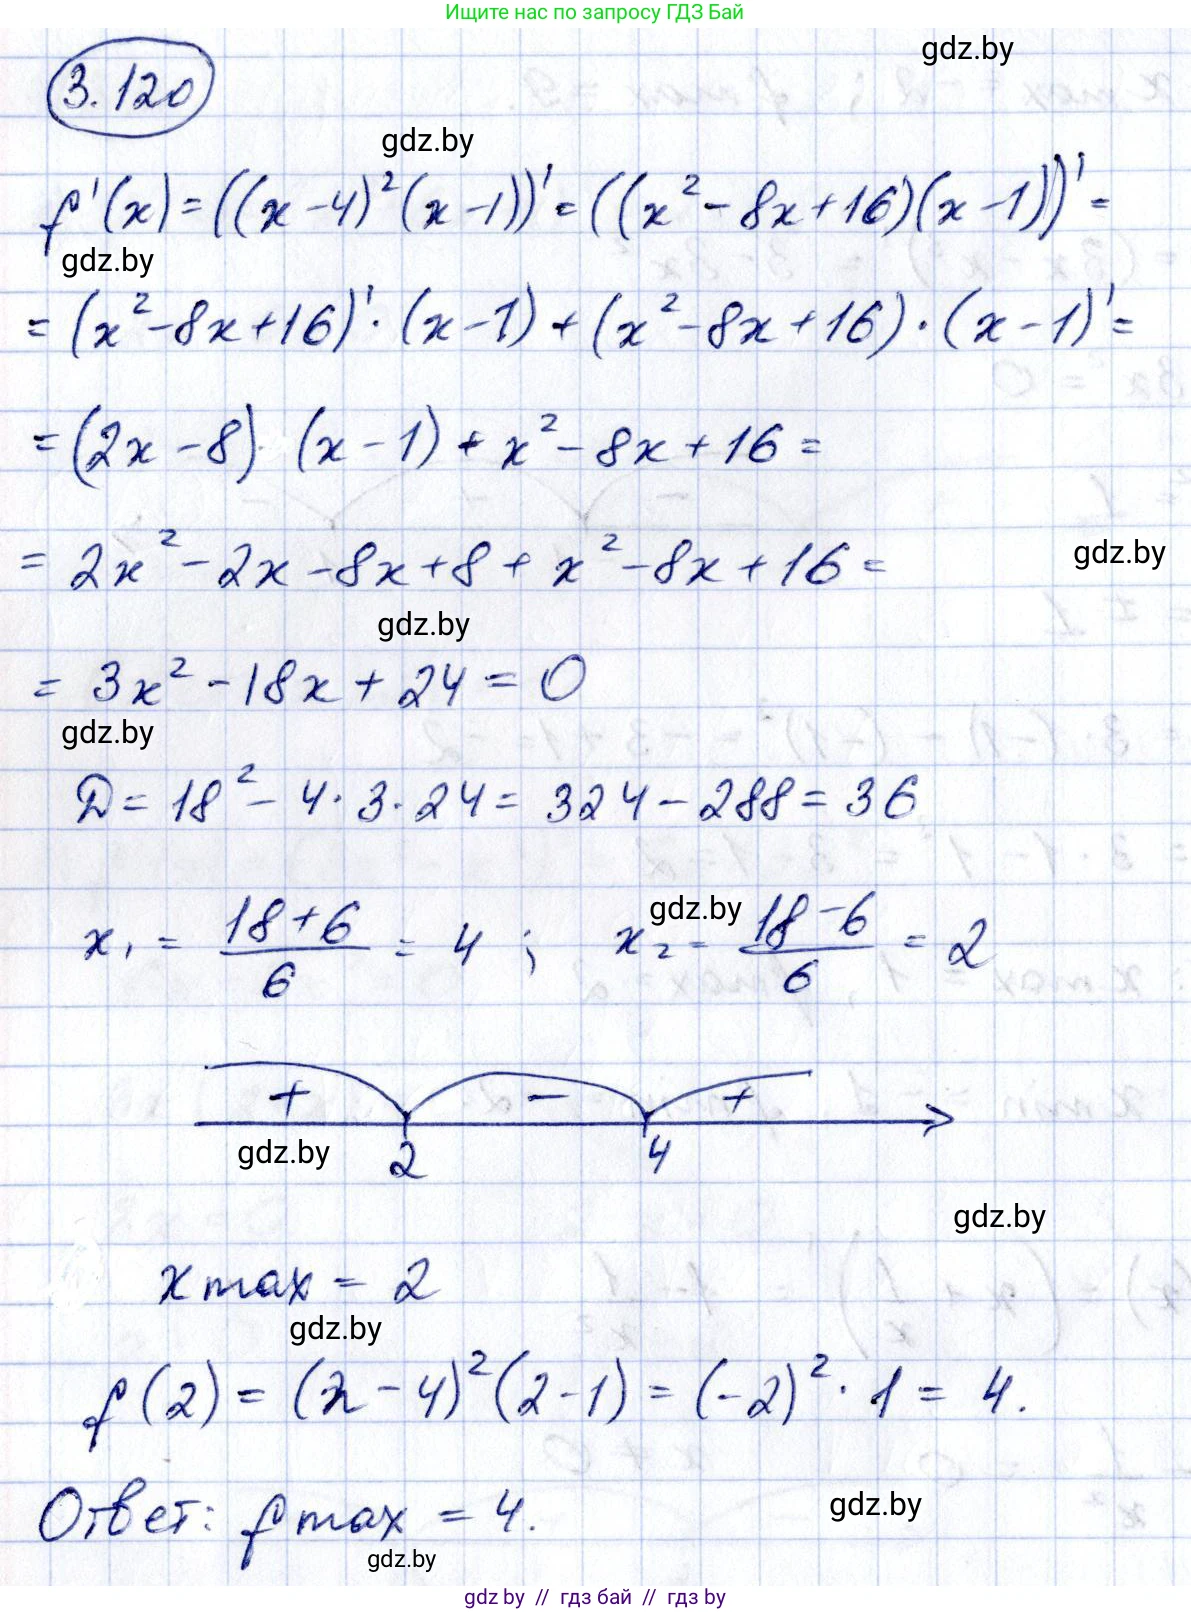 Ищите нас по запросу ГДЗ Бай
gdz.by
3.120
gdz.by
f'(x) = ((x-4)²(x-1))' = ((x²-8x+16)(x-1))' =
gdz.by
= (x²-8x+16)'·(x-1) + (x²-8x+16)·(x-1)' =
= (2x-8)·(x-1) + x²-8x+16 =
= 2x²-2x-8x+8+x²-8x+16 =
gdz.by
gdz.by
= 3x²-18x+24 = 0
gdz.by
D = 18²-4·3·24 = 324-288 = 36
gdz.by
x₁ = (18+6)/6 = 4 ; x₂ = (18-6)/6 = 2
+ - +
2 4
gdz.by
gdz.by
x max = 2
gdz.by
f(2) = (2-4)²(2-1) = (-2)²·1 = 4.
Ответ: f max = 4.
gdz.by
gdz.by
gdz by // гдз бай // gdz.by